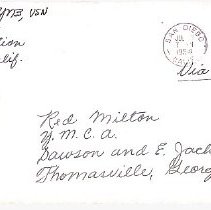 YNE, USN
tion
lif.
SAN DIEGO
1954
CALIF.
Via
Red Milton
Y.M.C.A.
Dawson and E. Jack
Thomasville, Georg